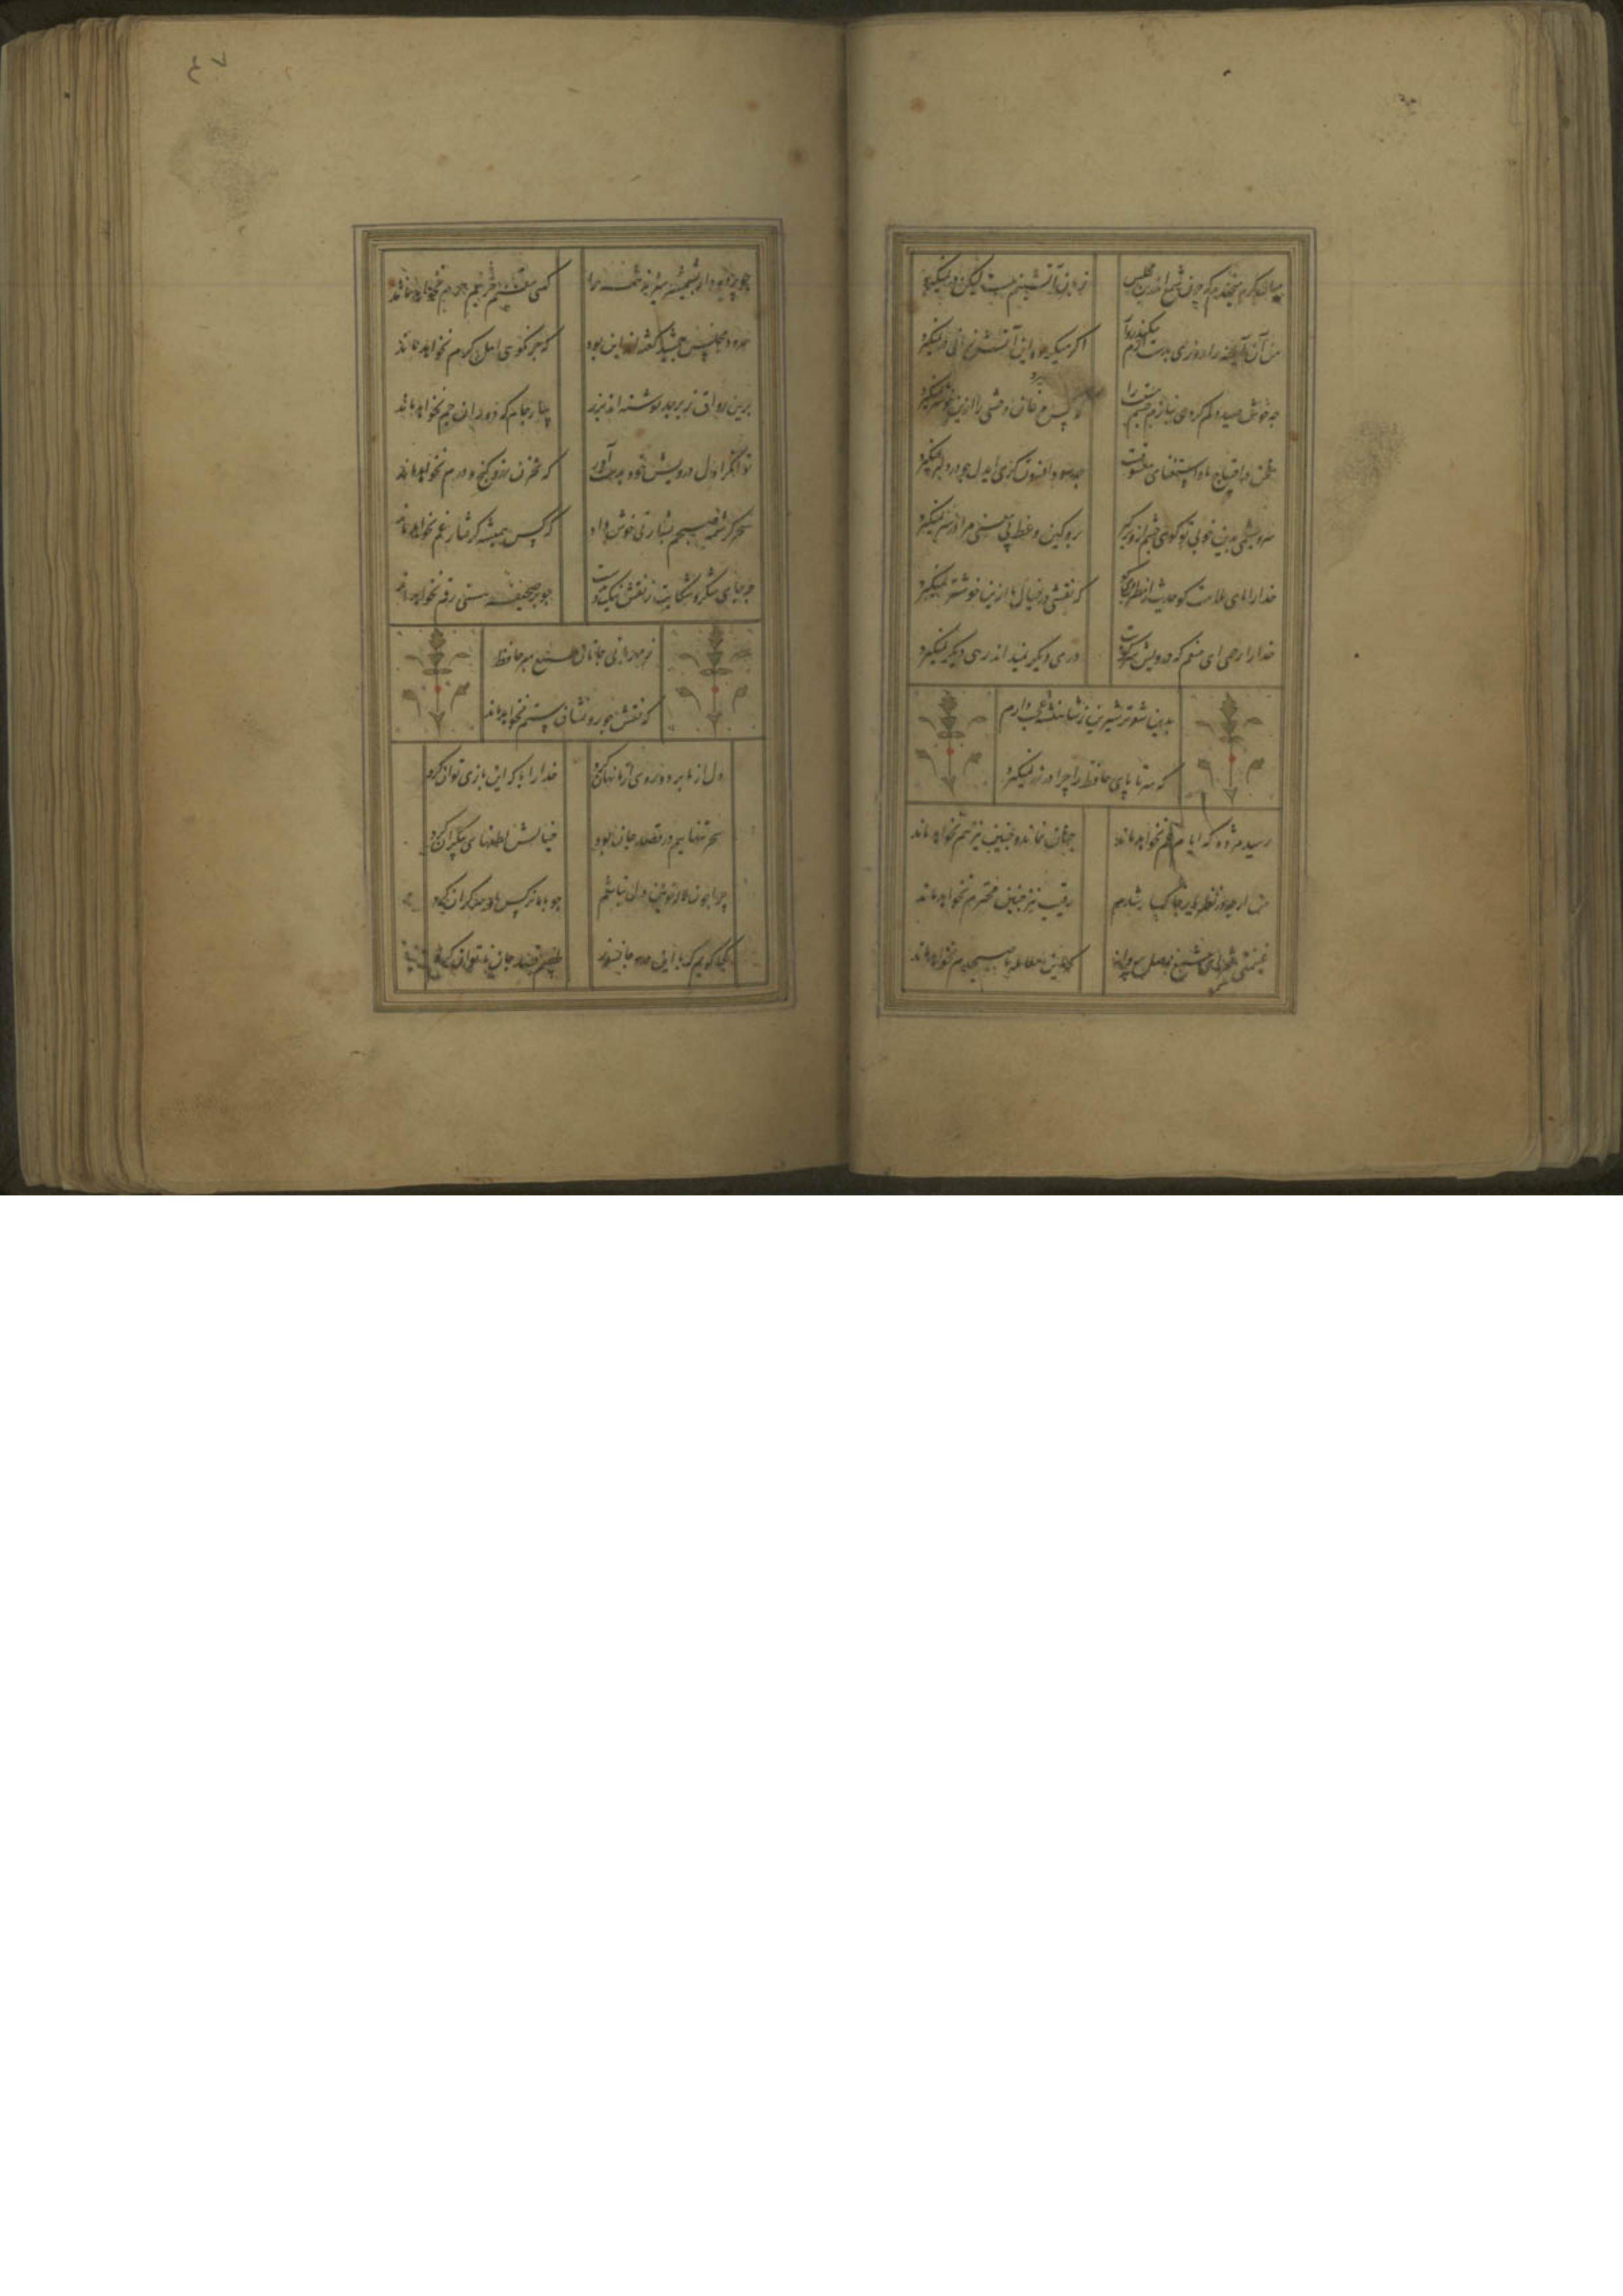 میان گریه میخندم که چون شمع اندرین مجلس زبان آتشینم هست لیکن در نمیگیرد
من آن آیینه را روزی بدست آرم سکندروار اگر میگیرد این آتش زمانی ور نمیگیرد
چه خوش صید دلم کردی بنازم چشم مستت را که کس مرغان وحشی را ازین خوشتر نمیگیرد
سخن در احتیاج ما و استغنای معشوقست چه سود افسون گری ای دل چو در دلبر نمیگیرد
سر و چشمی بدین خوبی تو گوئی چشم ازو برگیر برو کین وعظ بی معنی مرا در سر نمیگیرد
خدا را ای ملامت گو حدیث از خط او کم گو که نقشی در خیال ما ازین خوشتر نمیگیرد
خدا را رحمی ای منعم که درویش سر کویت دری دیگر نمیداند رهی دیگر نمیگیرد
بدین شعر تر شیرین ز شاهنشه عجب دارم
که سر تا پای حافظ را چرا در زر نمیگیرد
رسید مژده که ایام غم نخواهد ماند چنان نماند و چنین نیز هم نخواهد ماند
من ار چه در نظر یار خاکسار شدم رقیب نیز چنین محترم نخواهد ماند
غنیمتی شمر ای شمع وصل پروانه که این معامله تا صبحدم نخواهد ماند
چو پرده دار بشمشیر میزند همه را کسی مقیم حریم حرم نخواهد ماند
سرود مجلس جمشید گفته اند این بود که جز نکوئی اهل کرم نخواهد ماند
برین رواق زبرجد نوشته اند بزر بیار جام که دوران جم نخواهد ماند
توانگرا دل درویش خود بدست آور که مخزن زر و گنج و درم نخواهد ماند
سحر کرشمه صبحم بشارتی خوش داد که کس همیشه گرفتار غم نخواهد ماند
چه جای شکر و شکایت ز نقش نیک و بدست چو بر صحیفه هستی رقم نخواهد ماند
ز مهربانی جانان طمع مبر حافظ
که نقش جور و نشان ستم نخواهد ماند
دل از ما برد و روی از ما نهان کرد خدا را با که این بازی توان کرد
سحر تنهاییم در قصد جان بود خیالش لطفهای بیکران کرد
چرا چون لاله خونین دل نباشم چو با ما نرگس او سرگران کرد
کجا گویم که با این درد جانسوز طبیبم قصد جان ناتوان کرد